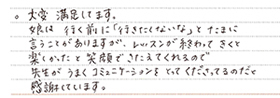 。大変 満足してます。
娘は 行く前に「行きたくないな」と たまに
言うことがありますが、レッスンが終わって きくと
楽しかったと 笑顔で こたえてくれるので
先生が うまく コミュニケーションを とってくださってるのだと
感謝しています。